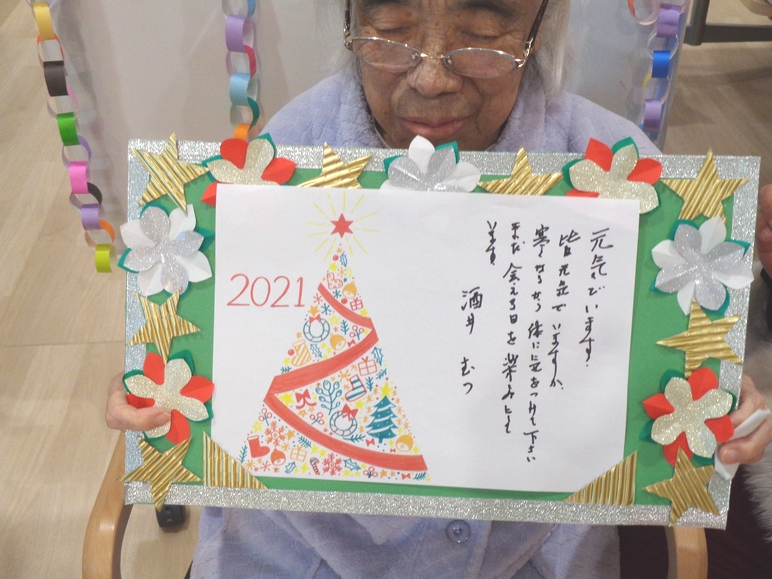 2021
元気でいます。
皆元気でいますか、
寒くなるから体に気をつけて下さい
また会える日を楽みにして
います
酒井 むつ